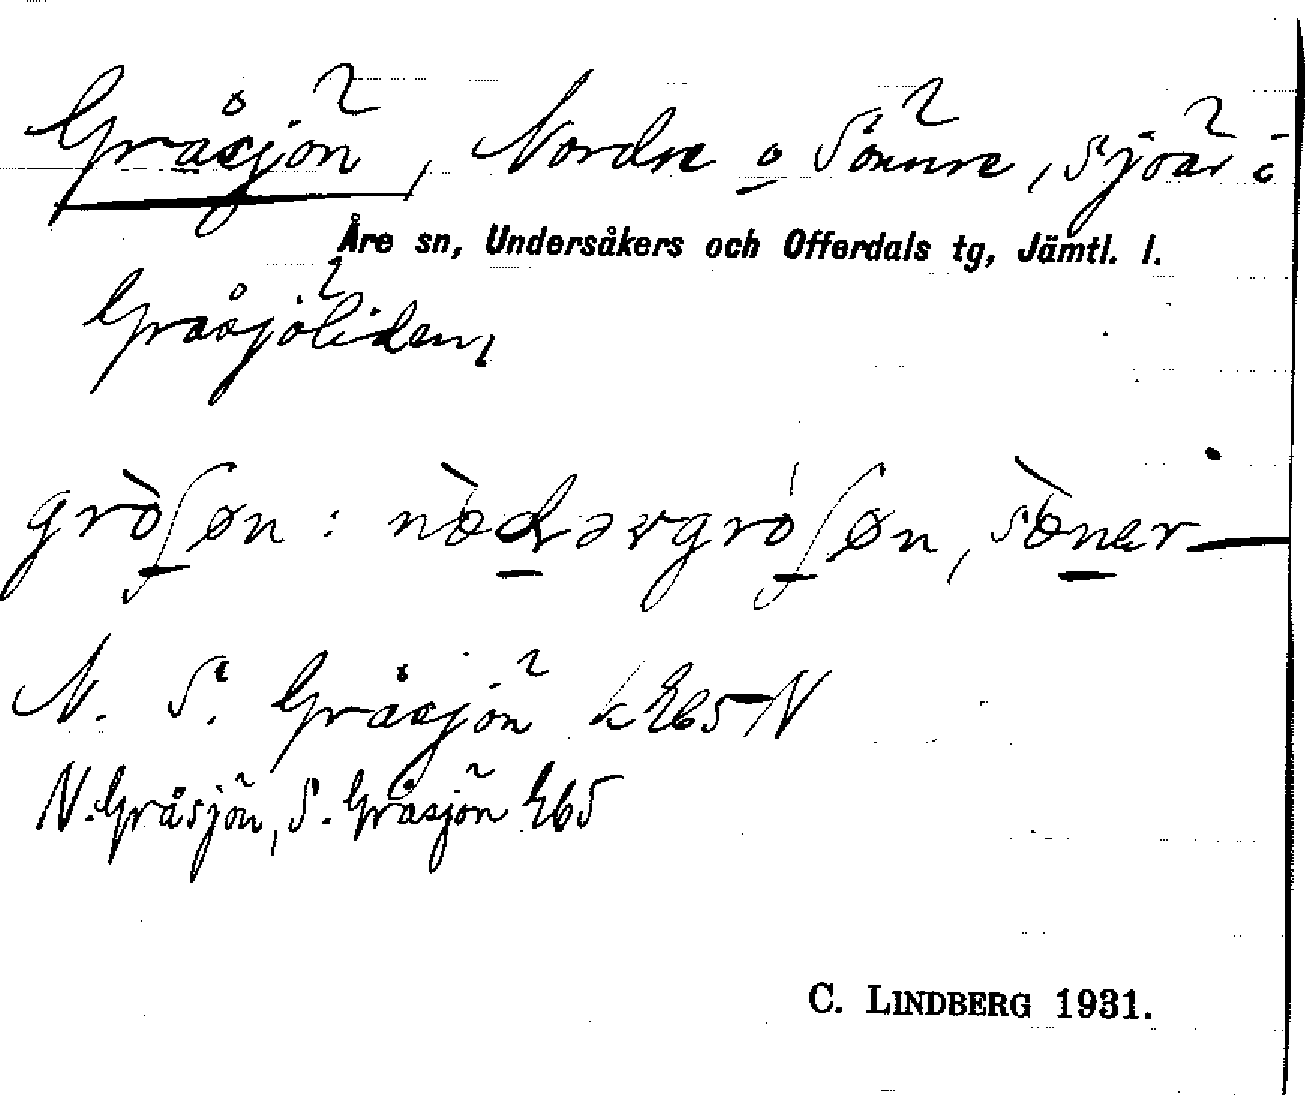 Gråsjön, Nordre o Sönnre, sjöar i
Åre sn, Undersåkers och Offerdals tg, Jämtl. l.
Gråsjöliden,
grò̀ʃøn : nœ̀ḍərgròʃøn, sœ̀ner—
N. S. Gråsjön k E65 N
N. Gråsjön, S. Gråsjön E65
C. LINDBERG 1931.